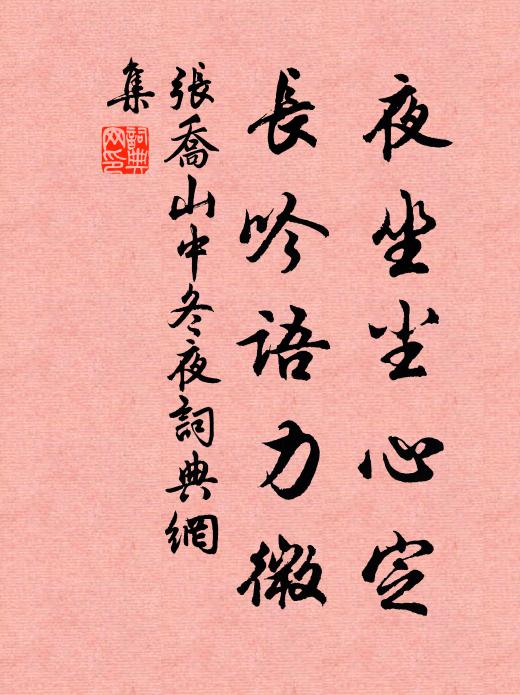 夜坐尘心定
長吟語力微
張喬山中冬夜詞典網
集
詞典
网印